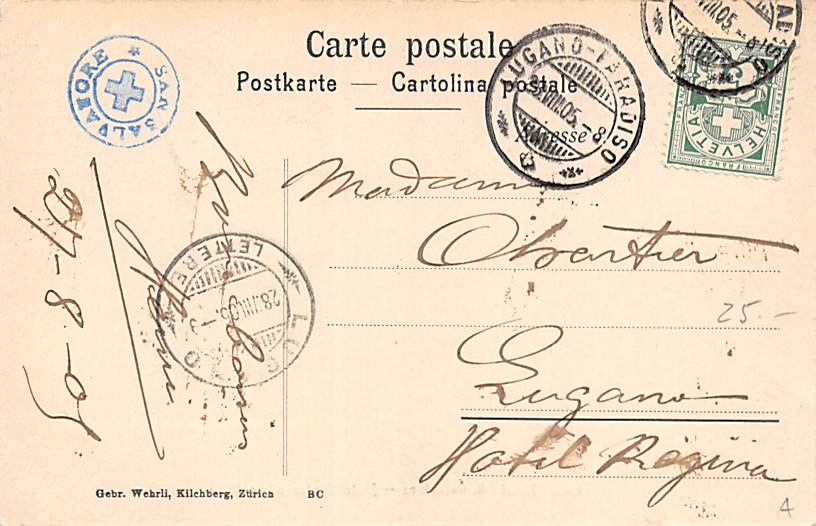 Carte postale
Postkarte — Cartolina postale
SAN SALVATORE
LUGANO-PARADISO
VIII.05.-8
HELVETIA
FRANCO
Adresse
Madame
Lugano
Hotel Régina
27-8-05
LUGANO
LETTERE
28.VIII.05.-3
25.-
Gebr. Wehrli, Kilchberg, Zürich BC